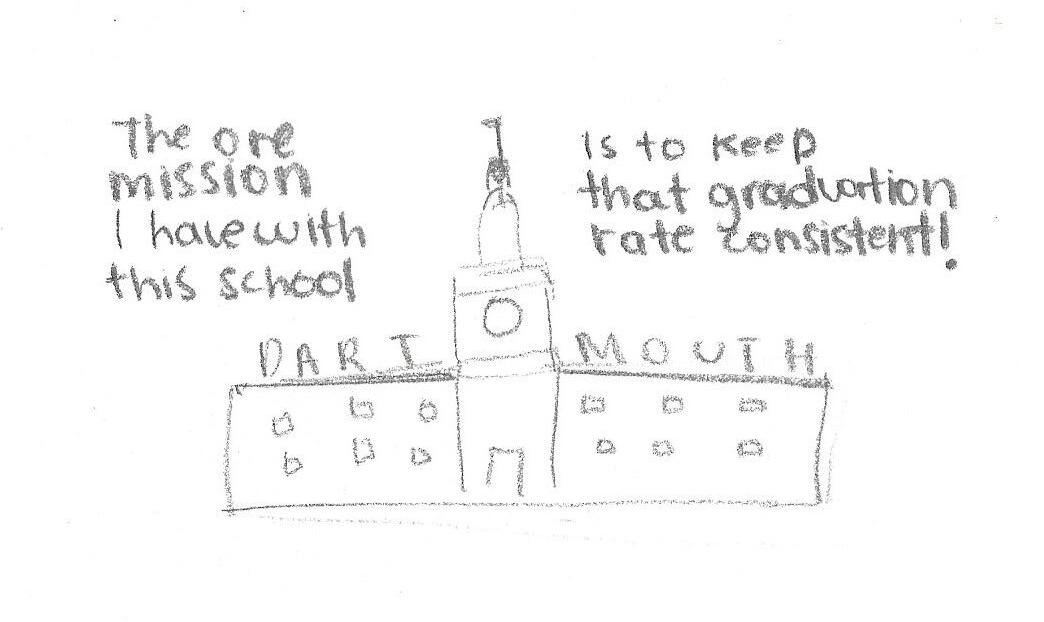 The one
mission
I have with
this school
Is to keep
that graduation
rate consistent!
DART MOUTH